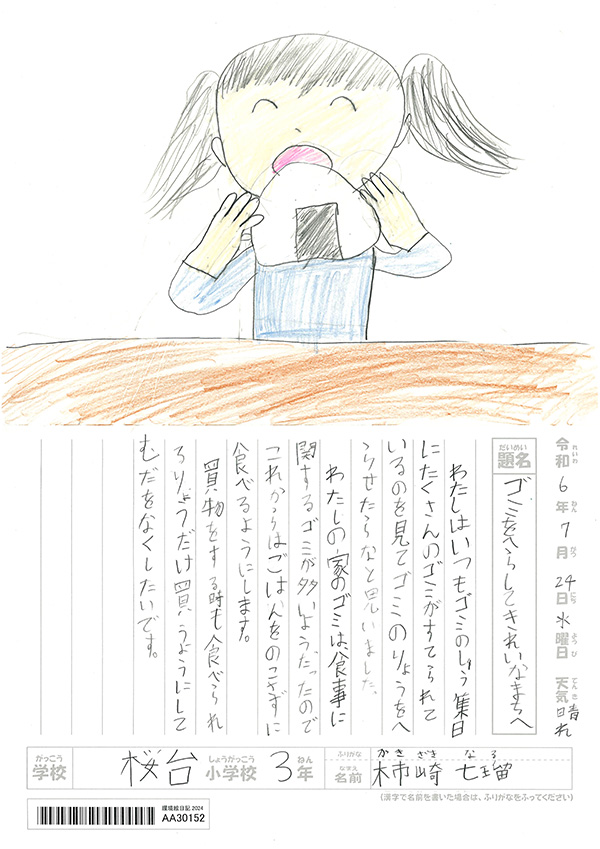 令和6年7月24日水曜日 天気 晴れ
れいわ ねん がつ にち ようび てんき
だいめい
題名 ゴミをへらしてきれいなまちへ
わたしはいつもゴミのしゅう集日
にたくさんのゴミがすてられて
いるのを見てゴミのりょうをへ
らせたらなと思いました。
わたしの家のゴミは、食事に
関するゴミが多いようだったので
これからはごはんをのこさずに
食べるようにします。
買物をする時も食べられ
るりょうだけ買うようにして
むだをなくしたいです。
がっこう しょうがっこう ねん
学校 桜台小学校 3年
ふりがな かきざき なる
なまえ
名前 柿崎 七瑠
(漢字で名前を書いた場合は、ふりがなをふってください)
環境絵日記 2024
AA30152